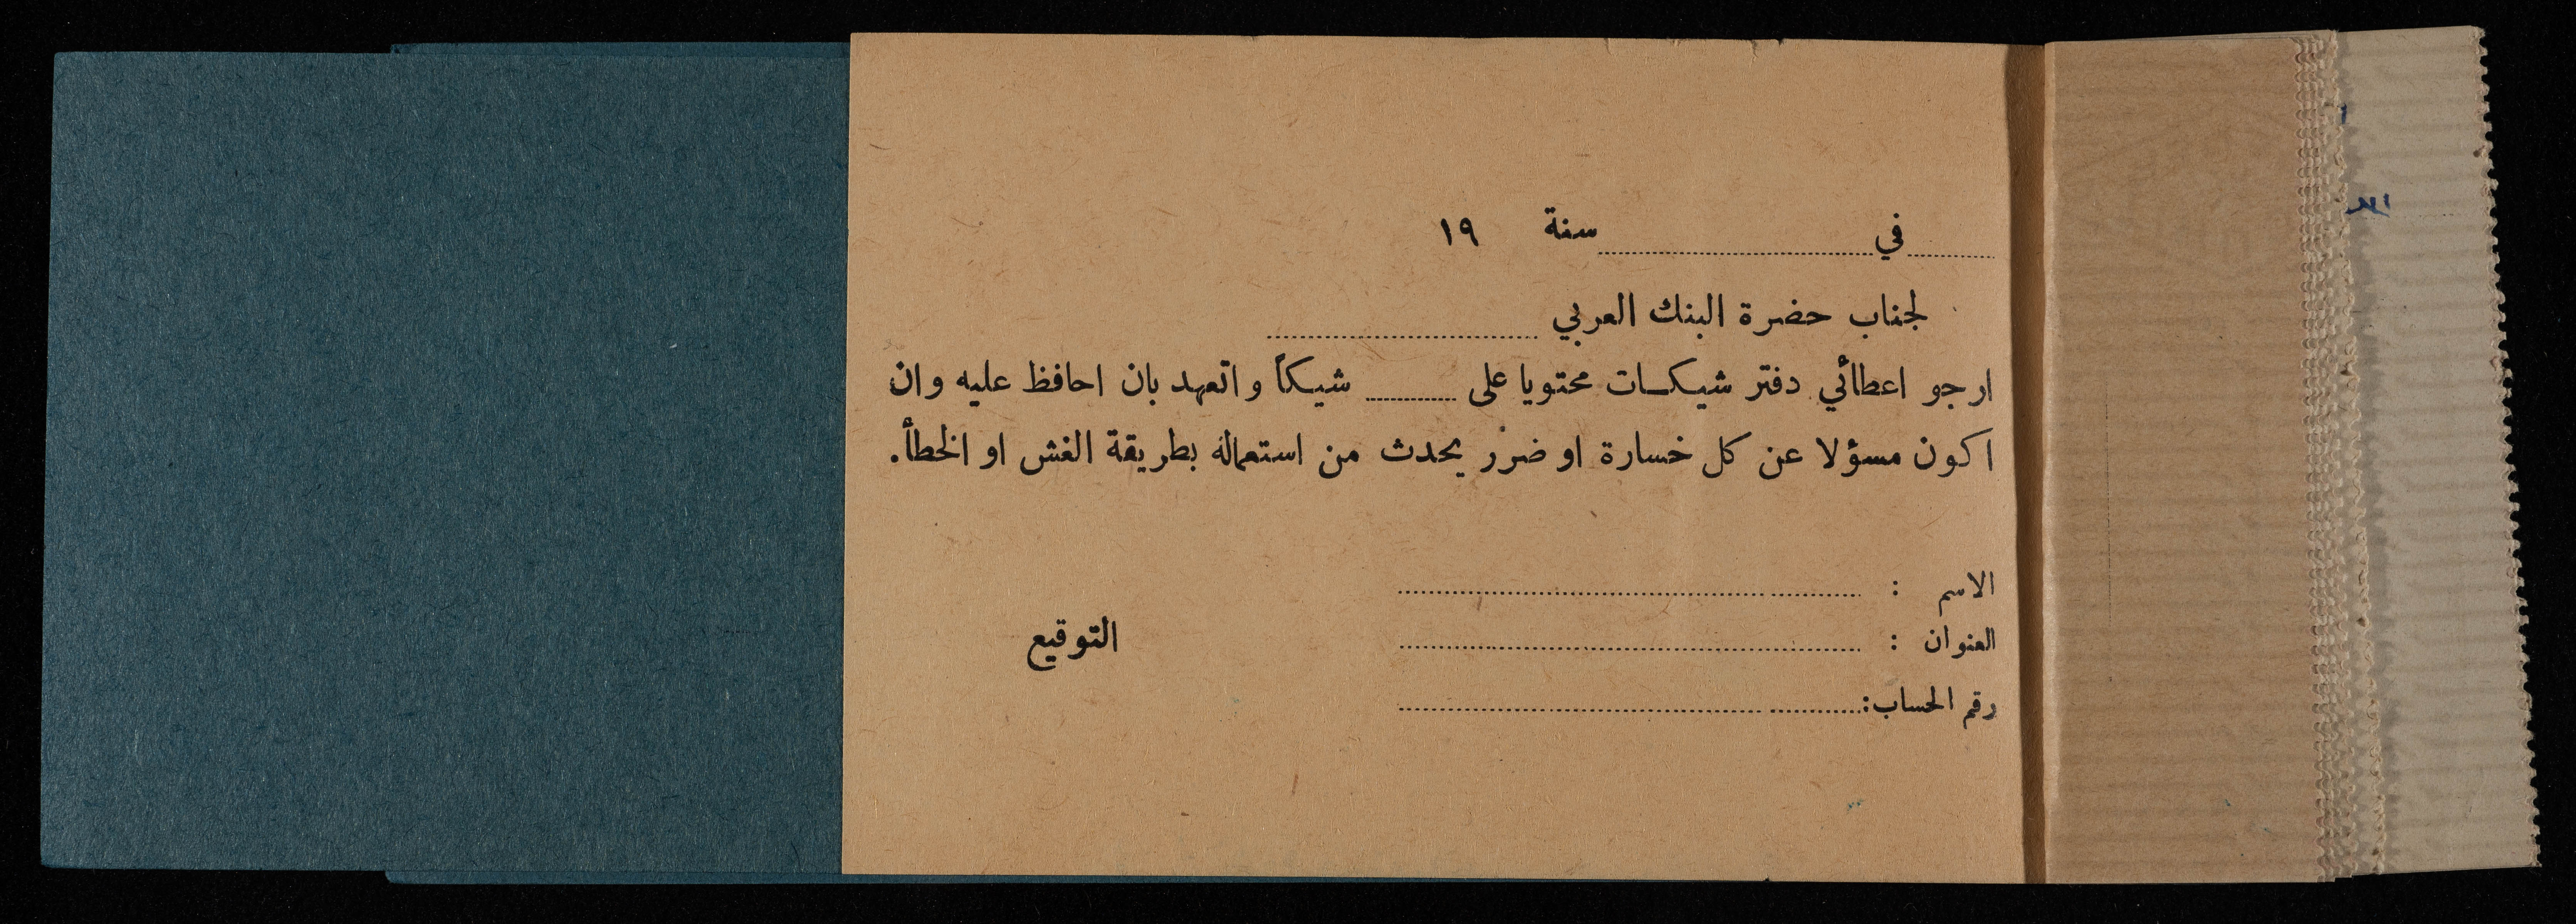 ........ في ........................ سنة ١٩
لجناب حضرة البنك العربي ........................
ارجو اعطائي دفتر شيكات محتويا على ........ شيكاً واتعهد بان احافظ عليه وان
اكون مسؤلا عن كل خسارة او ضرر يحدث من استعماله بطريقة الغش او الخطأ.
الاسم : ........................
العنوان : ........................
التوقيع
رقم الحساب: ........................